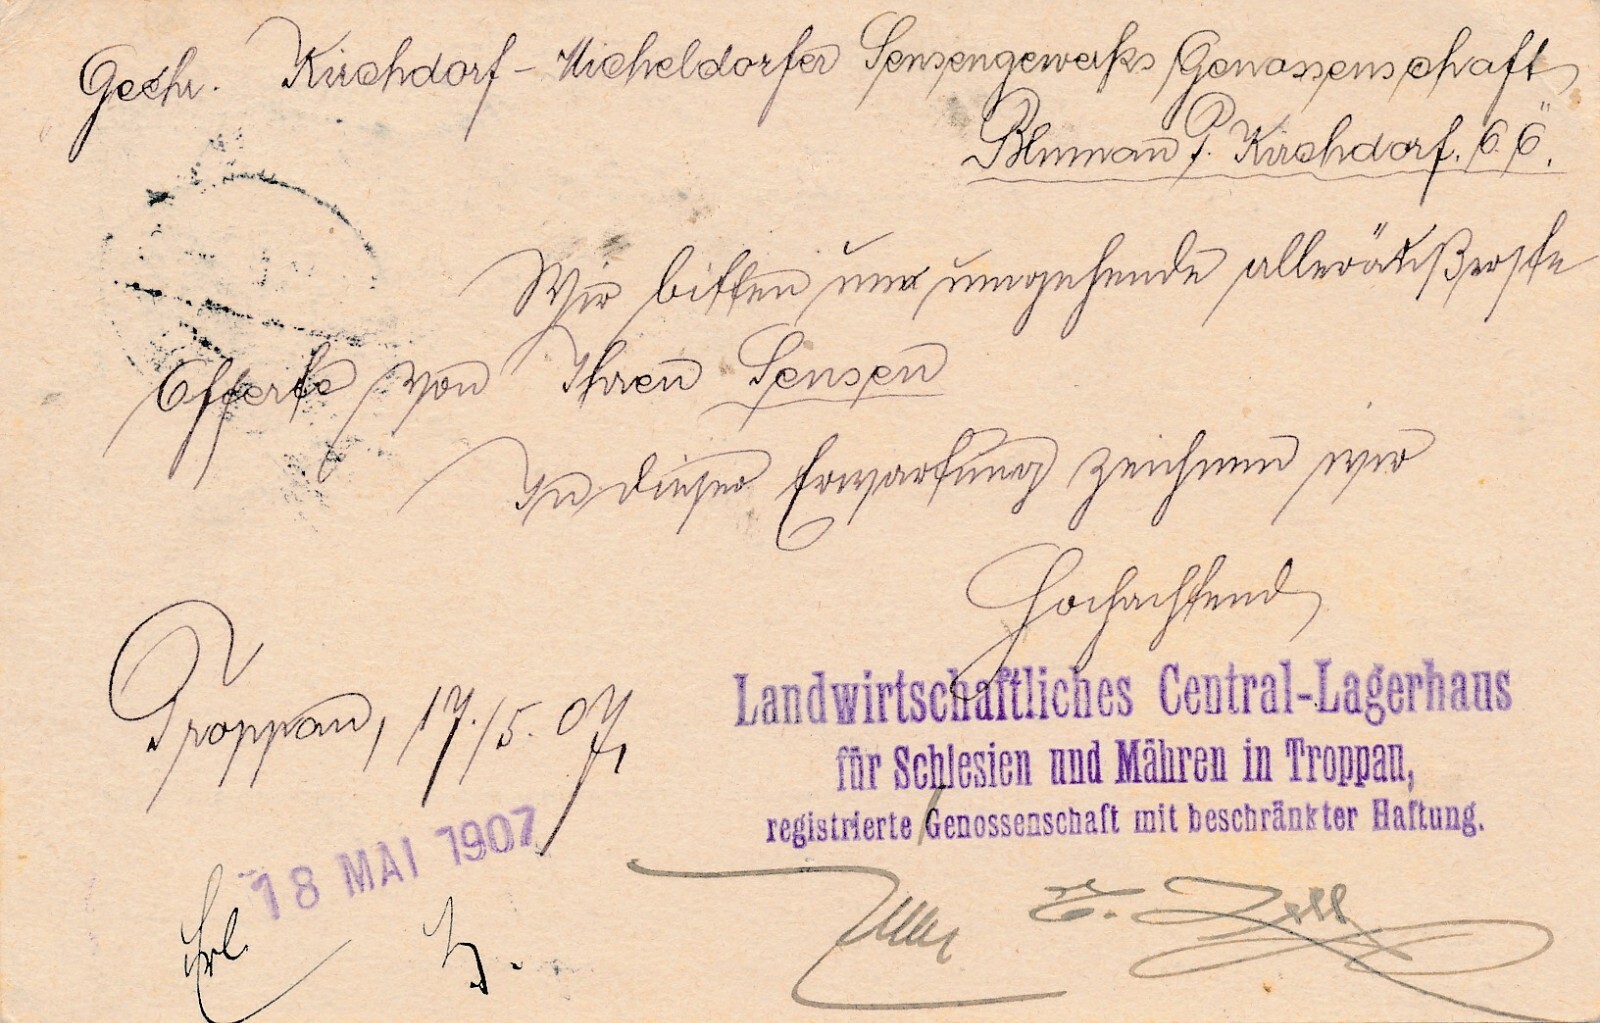 Geehr. Kirchdorf-Micheldorfer Sensengewerks Genossenschaft
Blumau P. Kirchdorf. O.Ö.
Wir bitten um umgehende alleräußerste
Offerte von Ihren Sensen
In dieser Erwartung zeichnen wir
Hochachtend
Troppau, 17./5. 07,
Landwirtschaftliches Central-Lagerhaus
für Schlesien und Mähren in Troppau,
registrierte Genossenschaft mit beschränkter Haftung.
18 MAI 1907